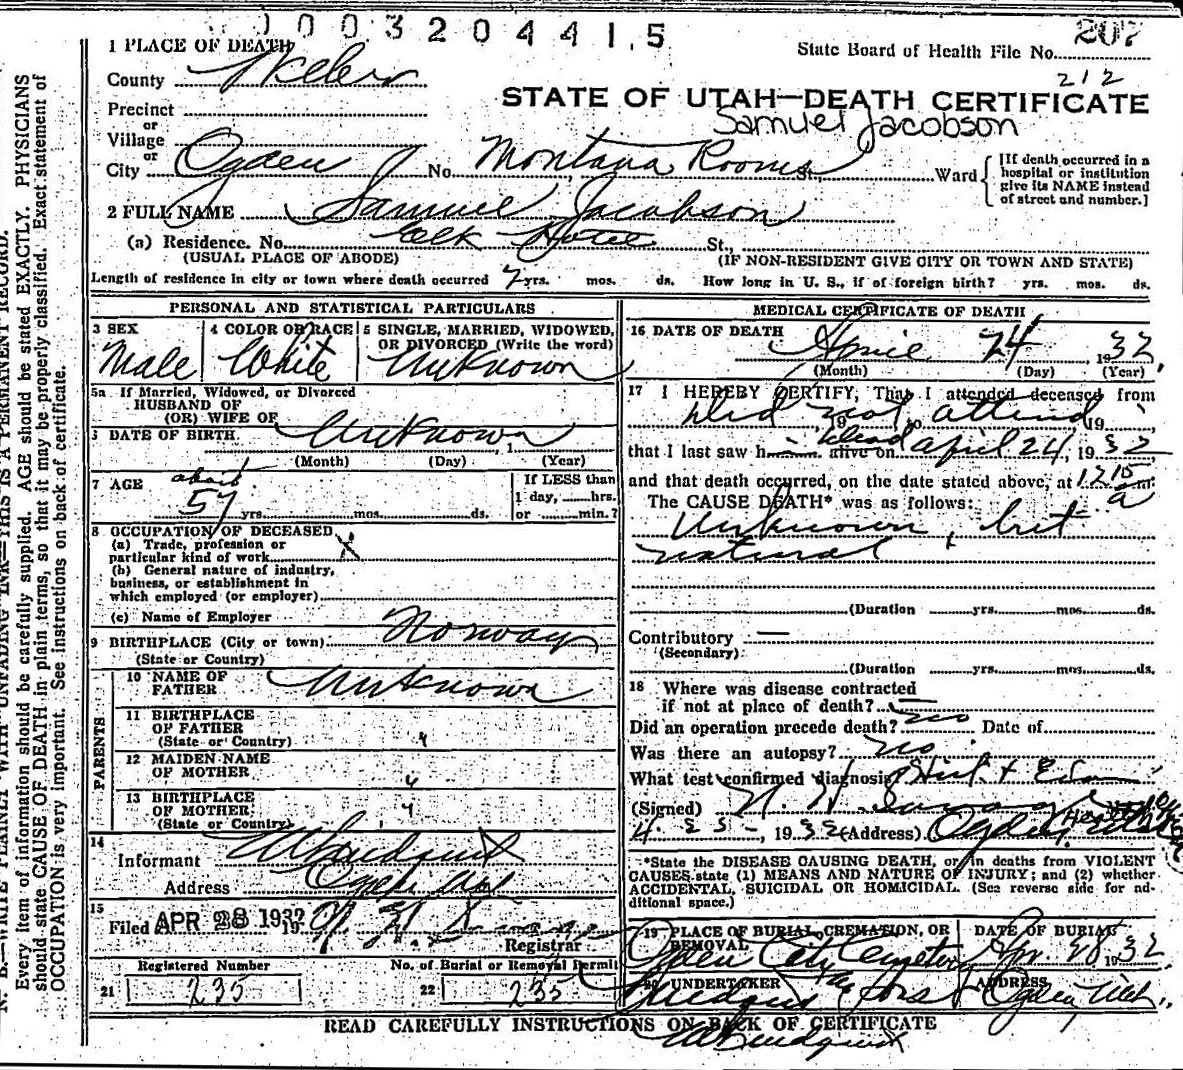 1003204415
State Board of Health File No. 207
212
STATE OF UTAH—DEATH CERTIFICATE
Samuel Jacobson
1 PLACE OF DEATH
County Weber
Precinct
or
Village
or
City Ogden No. Montana Rooms St., Ward
[If death occurred in a hospital or institution give its NAME instead of street and number.]
2 FULL NAME Samuel Jacobson
(a) Residence. No. Elk Hotel St.,
(USUAL PLACE OF ABODE) (IF NON-RESIDENT GIVE CITY OR TOWN AND STATE)
Length of residence in city or town where death occurred 7 yrs. mos. ds. How long in U. S., if of foreign birth? yrs. mos. ds.
PERSONAL AND STATISTICAL PARTICULARS
3 SEX Male
4 COLOR OR RACE White
5 SINGLE, MARRIED, WIDOWED, OR DIVORCED (Write the word) Unknown
5a If Married, Widowed, or Divorced
HUSBAND OF
(OR) WIFE OF
6 DATE OF BIRTH Unknown, 1
(Month) (Day) (Year)
7 AGE about 57 yrs. mos. ds.
If LESS than
1 day, hrs.
or min.?
8 OCCUPATION OF DECEASED
(a) Trade, profession or
particular kind of work x
(b) General nature of industry,
business, or establishment in
which employed (or employer)
(c) Name of Employer
9 BIRTHPLACE (City or town) Norway
(State or Country)
PARENTS
10 NAME OF FATHER Unknown
11 BIRTHPLACE OF FATHER (State or Country) "
12 MAIDEN NAME OF MOTHER "
13 BIRTHPLACE OF MOTHER (State or Country) "
14
Informant
Address Ogden Utah
15
Filed APR 28 1932 19
Registrar
Registered Number
21 235
No. of Burial or Removal Permit
22 235
MEDICAL CERTIFICATE OF DEATH
16 DATE OF DEATH
April 24, 1932
(Month) (Day) (Year)
17 I HEREBY CERTIFY, That I attended deceased from
Did not attend, 19 to 19
that I last saw h alive on dead april 24, 1932
and that death occurred, on the date stated above, at 1215 a m.
The CAUSE DEATH* was as follows:
Unknown, but
natural
(Duration yrs. mos. ds.
Contributory —
(Secondary)
(Duration yrs. mos. ds.
18 Where was disease contracted
if not at place of death? —
Did an operation precede death? no Date of
Was there an autopsy? no
What test confirmed diagnosis Hist + Ex
(Signed)
4-25-, 1932 (Address) Ogden, Utah
*State the DISEASE CAUSING DEATH, or in deaths from VIOLENT
CAUSES state (1) MEANS AND NATURE OF INJURY; and (2) whether
ACCIDENTAL, SUICIDAL OR HOMICIDAL. (See reverse side for ad-
ditional space.)
19 PLACE OF BURIAL, CREMATION, OR REMOVAL
Ogden City Cemetery
DATE OF BURIAL
Apr. 28 1932
20 UNDERTAKER
ADDRESS
Ogden, Utah
READ CAREFULLY INSTRUCTIONS ON BACK OF CERTIFICATE
N. B.—WRITE PLAINLY WITH UNFADING INK—THIS IS A PERMANENT RECORD.
Every item of information should be carefully supplied. AGE should be stated EXACTLY. PHYSICIANS
should state CAUSE OF DEATH in plain terms, so that it may be properly classified. Exact statement of
OCCUPATION is very important. See instructions on back of certificate.